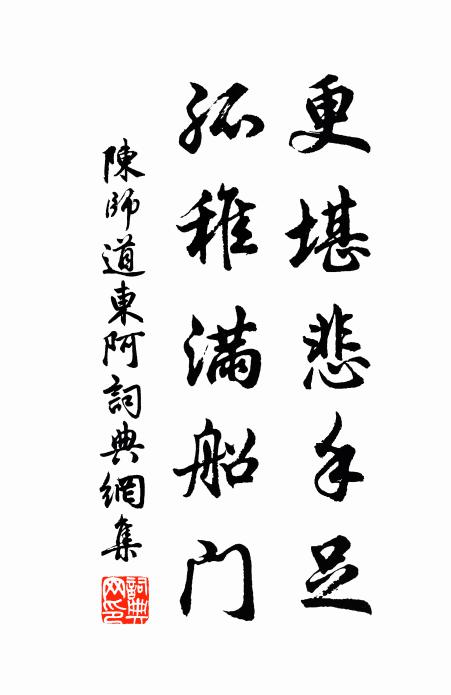 更堪悲手足
孤稚满船门
陳師道東阿詞典網集
詞典网印